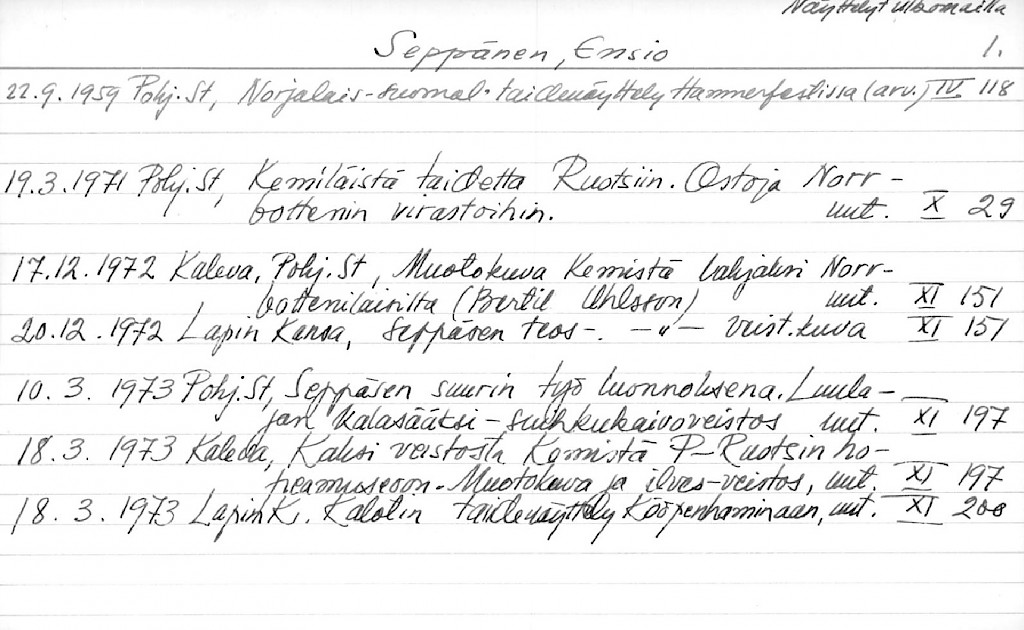 Näyttelyt ulkomailla
Seppänen, Ensio 1.
22.9.1959 Pohj.St, Norjalais-suomal. taidenäyttely Hammerfestissa (arv.) IV 118
19.3.1971 Pohj.St, Kemiläistä taidetta Ruotsiin. Ostoja Norr-
bottenin virastoihin. uut. X 29
17.12.1972 Kaleva, Pohj.St, Muotokuva Kemistä lahjaksi Norr-
bottenilaisilta (Bertil Uhlsson) uut. XI 151
20.12.1972 Lapin Kansa, Seppäsen teos-. -"- veist.kuva XI 151
10.3.1973 Pohj.St, Seppäsen suurin työ luonnoksena. Luula-
jan Kalasääksi-suihkukaivoveistos uut. XI 197
18.3.1973 Kaleva, Kaksi veistosta Kemistä P-Ruotsin ho-
peamuseoon. Muotokuva ja ilves-veistos, uut. XI 197
18.3.1973 Lapin K. Kalotin taidenäyttely Kööpenhaminaan, uut. XI 200